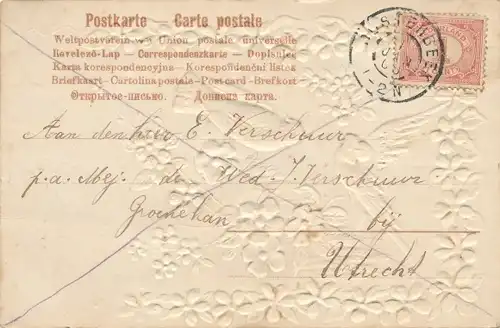 Postkarte Carte postale
Weltpostverein Union postale universelle
Levelező-Lap — Correspondenzkarte — Dopisnice
Karta korespondencyjna — Korespondenční lístek
Briefkaart — Cartolina postale — Post card — Brefkort
Открытое-письмо. Дописна карта.
Aan den heer E. Verschuur
p.a. Mej. de Wed. J. Verschuur
Groenekan bij
Utrecht